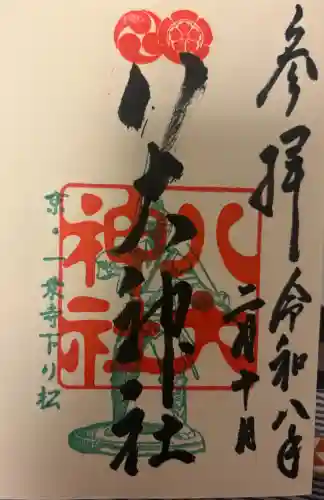 参拝 令和八年
二月十月
八大神社
八大神社
京・一乗寺下り松